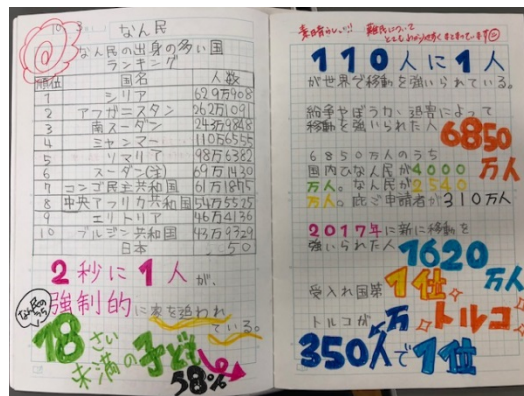 なん民
なん民の出身の多い国
ランキング
順位 国名 人数
1 シリア 629万0908
2 アフガニスタン 262万1091
3 南スーダン 243万9848
4 ミャンマー 110万6555
5 ソマリア 98万6382
6 スーダン 69万1430
7 コンゴ民主共和国 61万1875
8 中央アフリカ共和国 54万5525
9 エリトリア 46万4136
10 ブルンジ共和国 43万9329
日本 50
2秒に1人が、
強制的に家を追われ
ている。
18さい
未満の子ども
58%
素晴らしい!!! 難民について
110人に1人
が世界で移動を強いられている。
紛争やぼう力、迫害によって
移動を強いられた人 6850
万人
6850万人のうち
国内ひなん民が4000
万人。なん民が2540
万人。庇ご申請者が310万人
2017年に新に移動を
強いられた人 1620
万人
受入れ国第1位
トルコが トルコ
350万人で1位